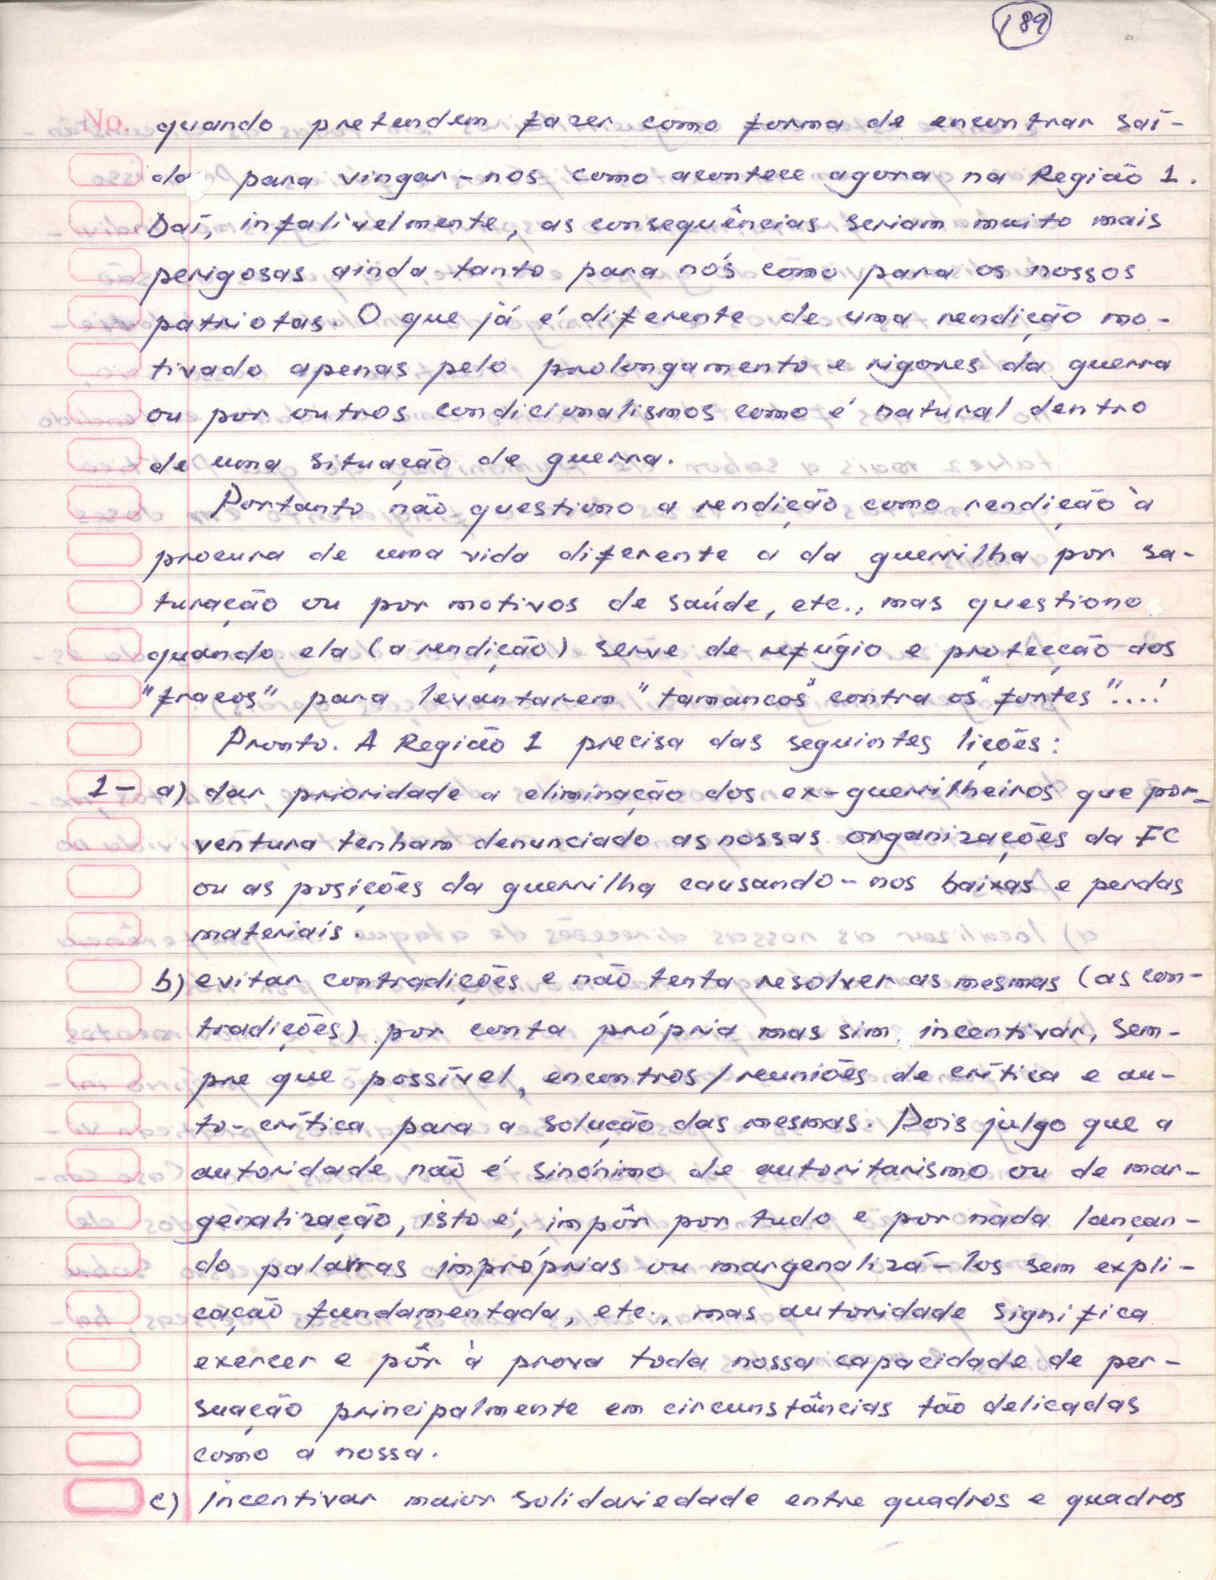 189
No.
quando pretendem fazer como forma de encontrar saí-
da para vingar-nos como acontece agora na Região 1.
Daí, infalívelmente, as consequências seriam muito mais
perigosas ainda tanto para nós como para os nossos
patriotas. O que já é diferente de uma rendição mo-
tivado apenas pelo prolongamento e rigores da guerra
ou por outros condicionalismos como é natural dentro
de uma situação de guerra.
Portanto não questiono a rendição como rendição à
procura de uma vida diferente a da guerrilha por sa-
turação ou por motivos de saúde, etc., mas questiono
quando ela (a rendição) serve de refúgio e protecção aos
"fracos" para levantarem "tamancos" contra os "fortes"...!
Pronto. A Região 1 precisa das seguintes lições:
1- a) dar prioridade a eliminação dos ex-guerrilheiros que por-
ventura tenham denunciado as nossas organizações da FC
ou as posições da guerrilha causando-nos baixas e perdas
materiais.
b) evitar contradições e não tenta resolver as mesmas (as con-
tradições) por conta própria mas sim incentivar, sem-
pre que possível, encontros/reuniões de crítica e au-
to-crítica para a solução das mesmas. Pois julgo que a
autoridade não é sinónimo de autoritarismo ou de mar-
genalização, isto é, impôr por tudo e por nada lançan-
do palavras impróprias ou margenalizá-los sem expli-
cação fundamentada, etc., mas autoridade significa
exercer e pôr à prova toda nossa capacidade de per-
suação principalmente em circunstâncias tão delicadas
como a nossa.
c) Incentivar maior solidariedade entre quadros e quadros